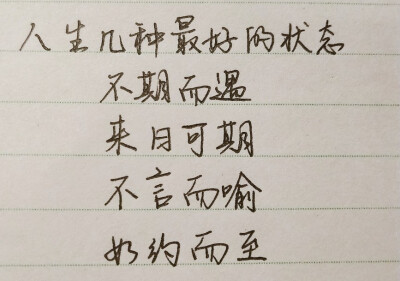 人生几种最好的状态
不期而遇
来日可期
不言而喻
如约而至